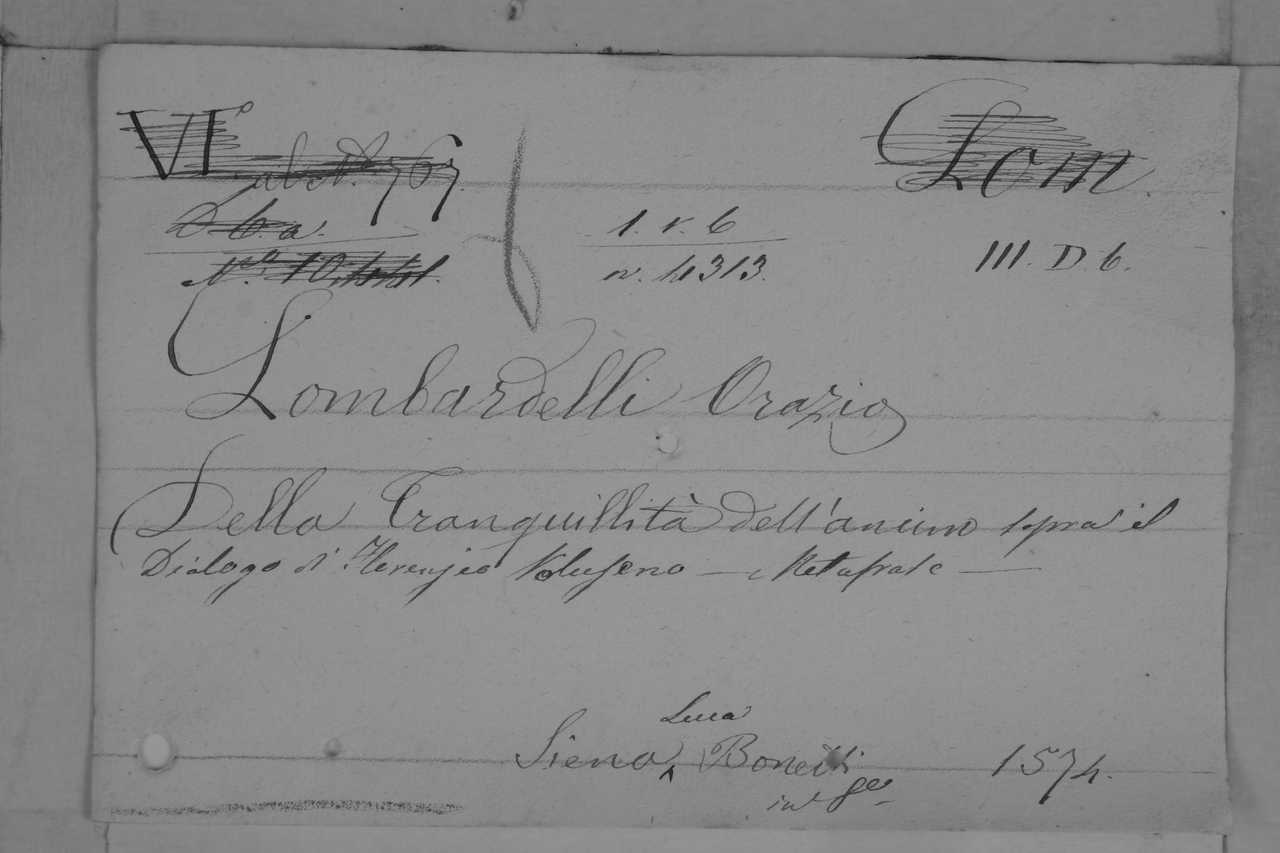 VI° Lom.
al N.° 767.
D. 6. a. 1. v. 6
N.° 10 n. 4313. III. D. 6.
Lombardelli Orazio
Della Tranquillità dell'animo sopra il
Dialogo di Florenzio Voluseno — Metafrase —
Luca
Siena, Bonetti 1574.
in 8°